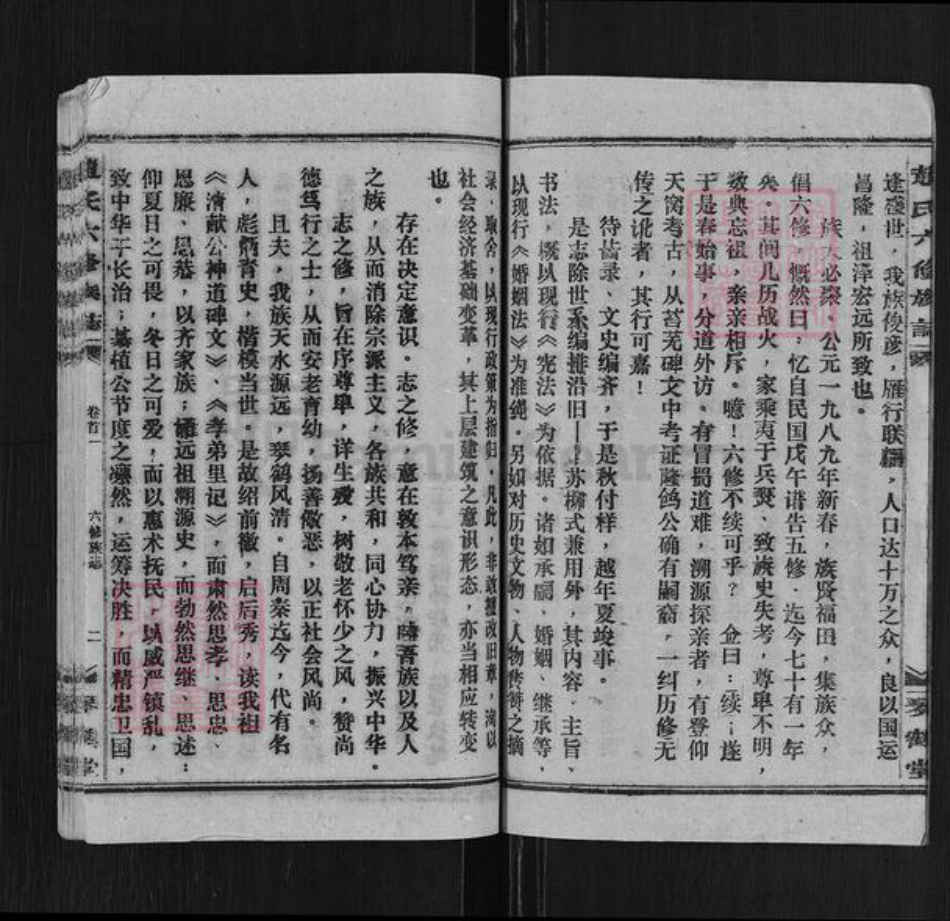 赵氏六修族志
琴鹤堂
逢盛世，我族俊彦，雁行联翩，人口达十万之众，良以国运
昌隆，祖泽宏远所致也。
族大必聚、公元一九八九年新春，族贤福田，集族众，
倡六修，慨然曰：忆自民国戊午谱告五修．迄今七十有一年
矣。其间几历战火，家乘夷于兵燹、致族史失考，尊卑不明，
数典忘祖，亲亲相斥。噫！六修不续可乎？佥曰：续；遂
于是春始事，分道外访。有冒蜀道难，溯源探亲者，有登仰
天窝考古，从苔芜碑文中考证隆鸽公确有嗣裔，一纠历修无
传之讹者，其行可嘉！
待齿录、文史编齐，于是秋付梓，越年夏竣事。
是志除世系编排沿旧——欧苏柳式兼用外，其内容．主旨、
书法，概以现行《宪法》为依据。诸如承嗣、婚姻、继承等，
以现行《婚姻法》为准绳。另如对历史文物、人物赞之摘
录、取舍，以现行政策为指归。凡此，非敢擅改旧章，海以
社会经济基础变革，其上层建筑之意识形态，亦当相应转变
也。
存在决定意识。志之修，意在敦本笃亲，睦吾族以及人
之族，从而消除宗派主义，各族共和，同心协力，振兴中华。
志之修，旨在序尊卑，详生殁，树敬老怀少之风，赞尚
德笃行之士，从而安老育幼，扬善儆恶，以正社会风尚。
且夫，我族天水源远，琴鹤风清。自周秦迄今，代有名
人，彪炳青史，楷模当世。是故绍前徽，启后秀，读我祖
《清献公神道碑文》、《孝弟里记》，而肃然思孝、思忠、
思廉、思恭，以齐家族；诵远祖溯源史，而勃然思继、思述；
仰夏日之可畏，冬日之可爱，而以惠术抚民，以威严镇乱，
致中华于长治；慕植公节度之凛然，运筹决胜，而精忠卫国，
赵氏六修族志
卷首一
六修族志
二
琴鹤堂